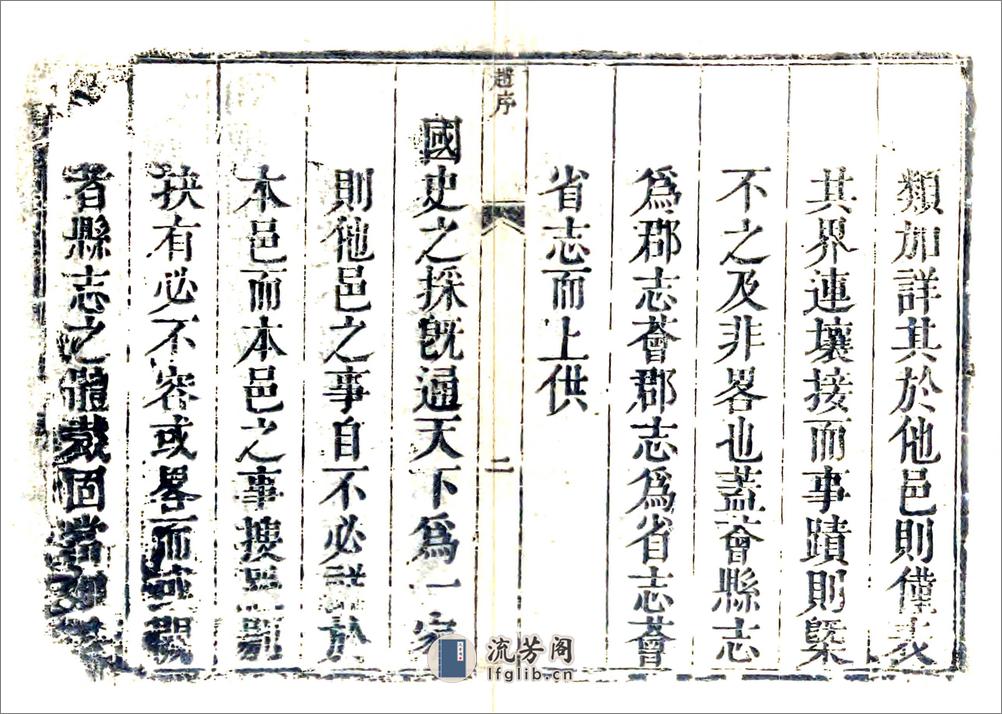 類加詳其於他邑則僅表
其界連壤接而事蹟則槩
不之及非畧也蓋薈縣志
爲郡志薈郡志爲省志薈
省志而上供
趙序
二
國史之採旣通天下爲一家
則他邑之事自不必詳於
本邑而本邑之事搜羅剔
抉有必不容或畧而或闕
者縣志之體裁固當如是
流芳阁
lfglib.cn